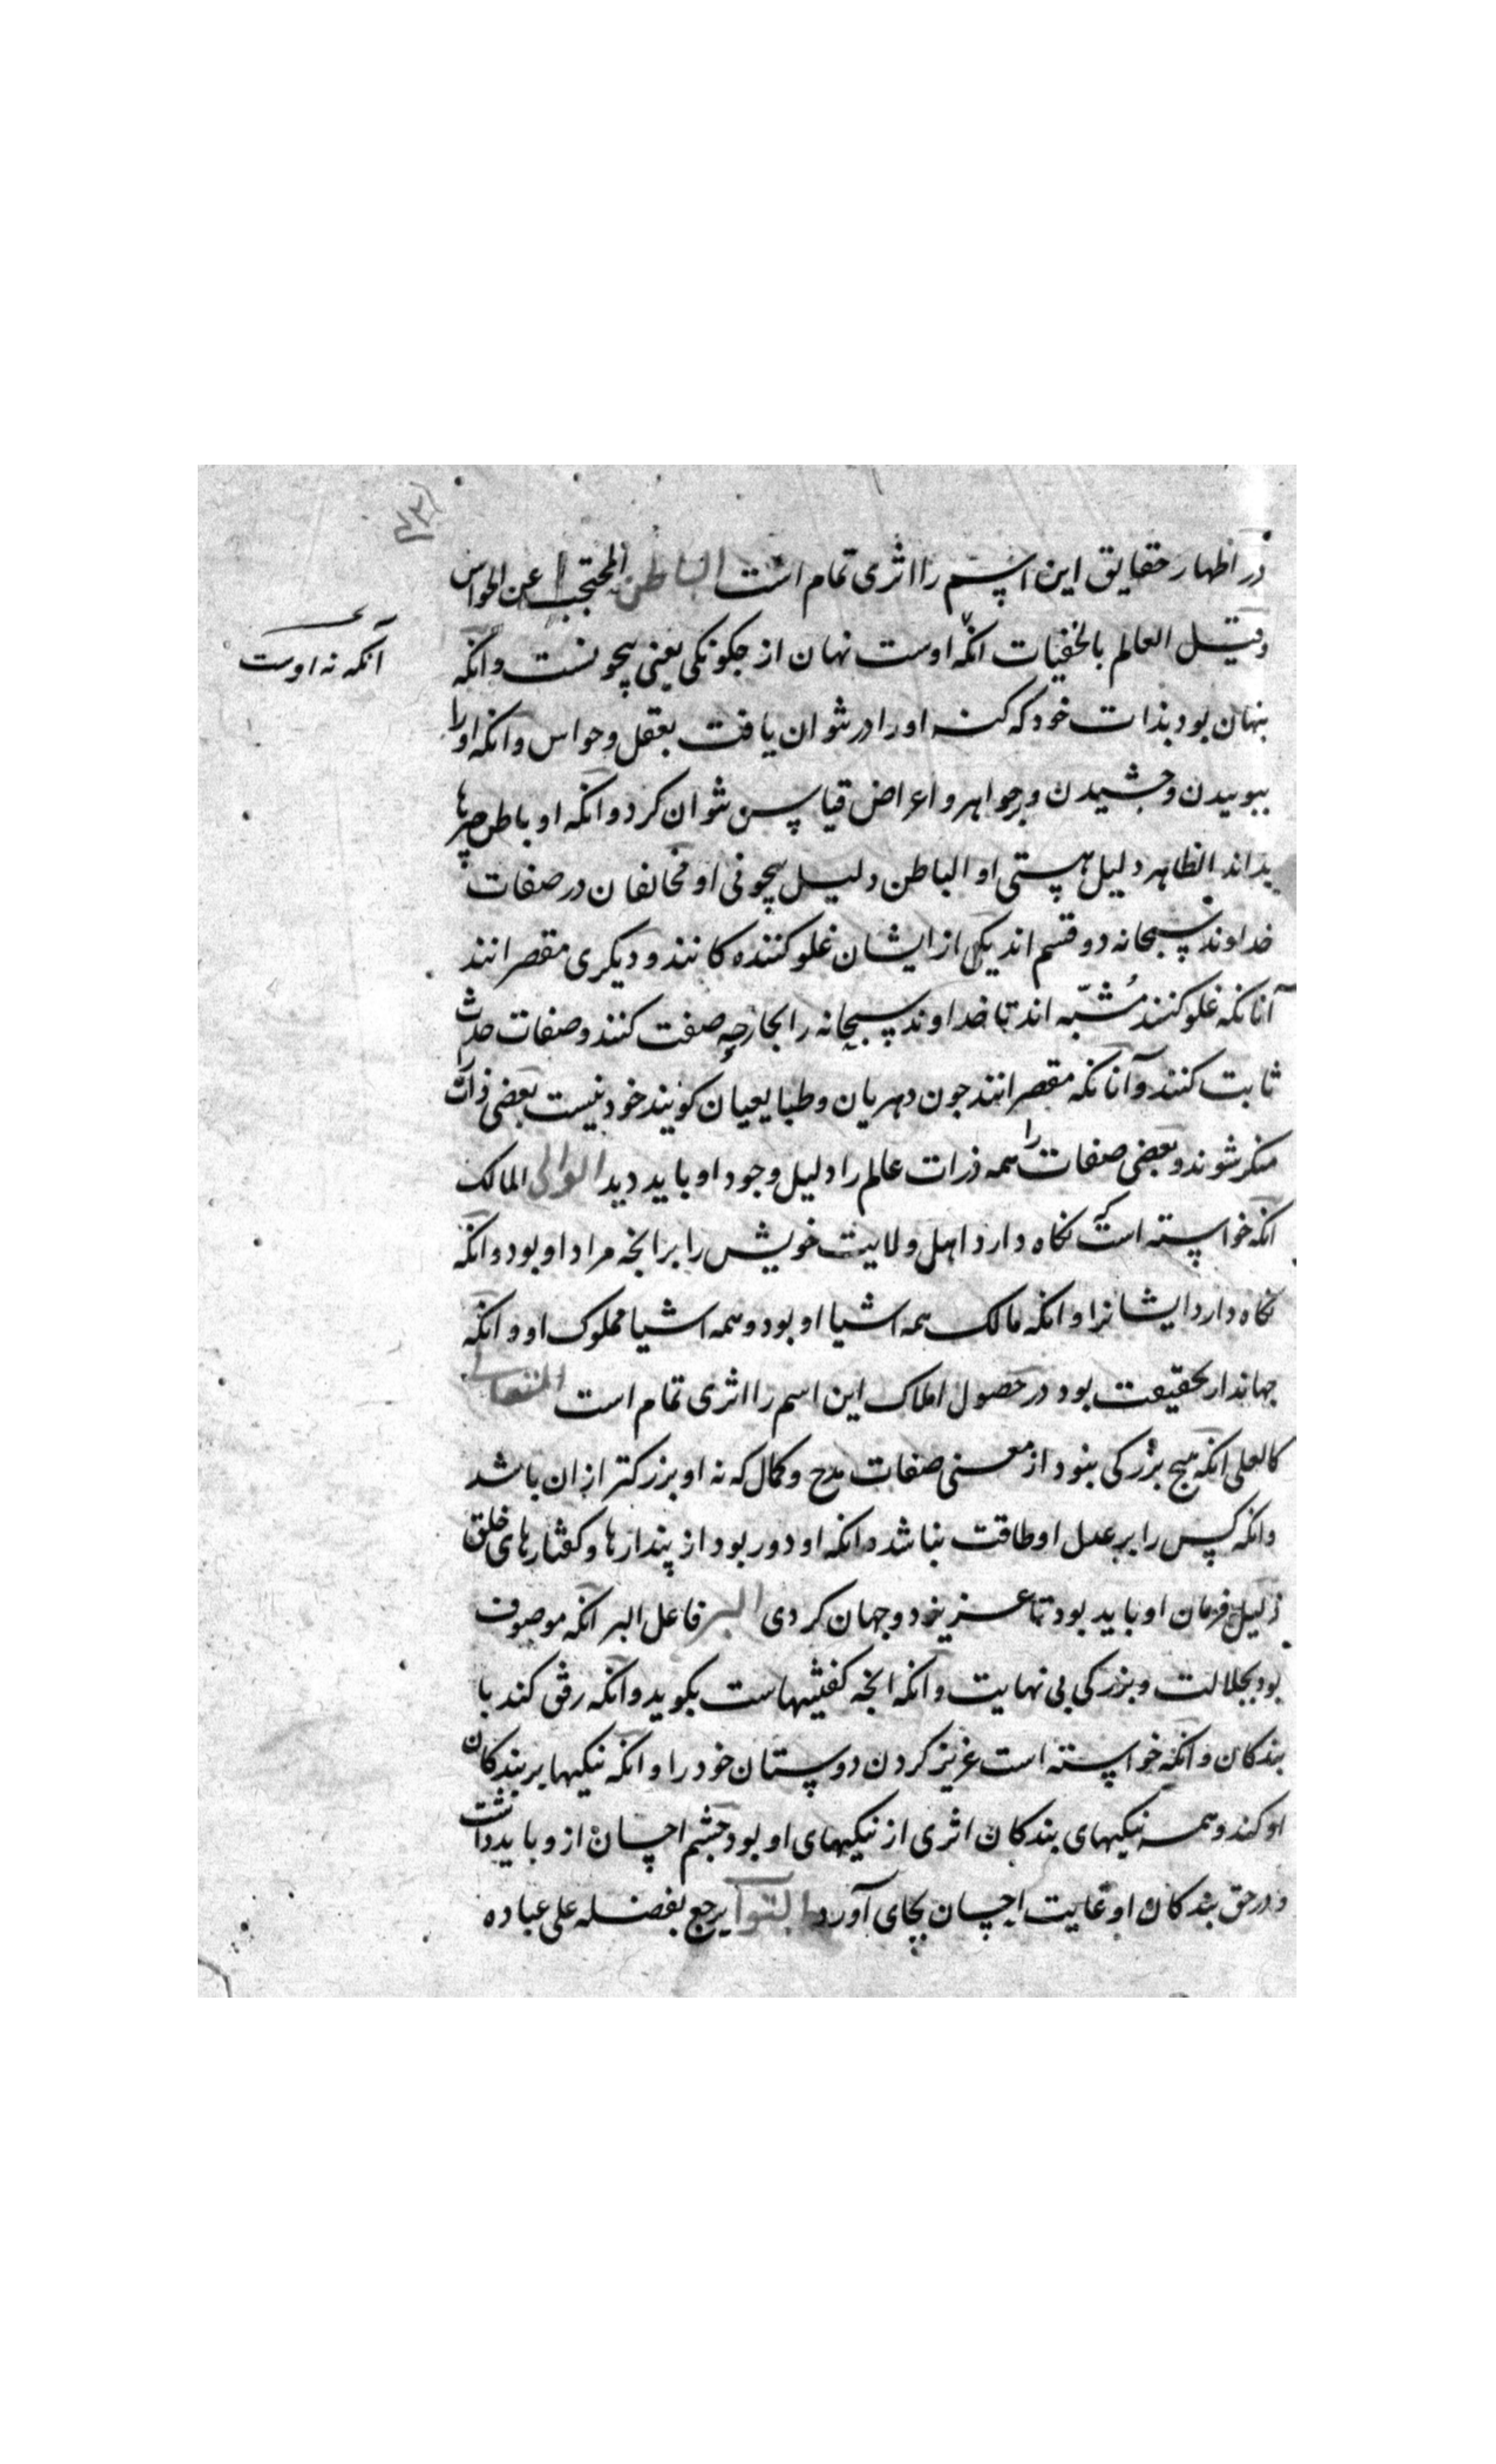 در اظهار حقایق این اسم را اثری تمام است الباطن المحتجب عن الحواس
وقیل العالم بالخفیات انکه اوست نهان از جکونکی یعنی بیچونست وانکه
آنکه نه اوست
پنهان بود بذات خود که کنه او را در نتوان یافت بعقل و حواس وانکه او را
ببوییدن وچشیدن وبرجواهر و اعراض قیاس نتوان کرد وانکه او باطن چیزها
بداند الظاهر دلیل هستی او الباطن دلیل بیچونی او مخالفان در صفات
خداوند سبحانه دو قسم اند یکی از ایشان غلو کننده کانند و دیکری مقصرانند
آنانکه غلو کنند مُشبّه اند تا خداوند سبحانه را بجارحه صفت کنند وصفات حدث
ثابت کنند وآنانکه مقصرانند جون دهریان وطبایعیان کویند خود نیست بعضی ذات
منکر شوند وبعضی صفات را همه ذرات عالم را دلیل وجود او باید دید الوالی المالک
انکه خواسته است که نکاه دارد اهل ولایت خویش را بر انجه مراد او بود وانکه
نکاه دارد ایشانرا وانکه مالک همه اشیا او بود وهمه اشیا مملوک او وانکه
جهاندار بحقیقت بود در حصول املاک این اسم را اثری تمام است المتعالی
کالعلی انکه هیج بزرکی بنود از معنی صفات مدح وکمال که نه او بزرکتر ازان باشد
وانکه کس را بر عدل او طاقت نباشد وانکه او دور بود از پندارها و کفتارهای خلق
ذلیل فرمان او باید بود تا عزیز خود وجهان کردی البر فاعل البر انکه موصوف
بود بجلالت و بزرکی بی نهایت وانکه انجه کفتنیهاست بکوید وانکه رفق کند با
بندکان وانکه خواسته است عزیز کردن دوستان خود را وانکه نیکیها بر بندکان
او کند وهمه نیکیهای بندکان اثری از نیکیهای او بود چشم احسان ازو باید داشت
ودر حق بندکان او غایت احسان بجای آورد التواب یرجع بفضله علی عباده